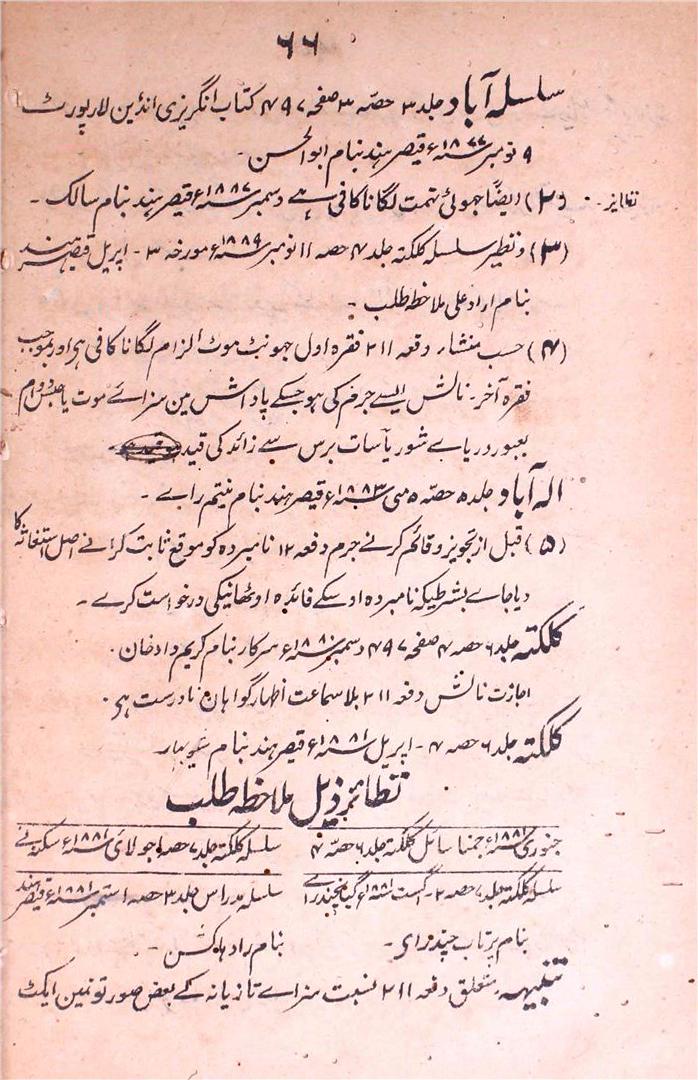 ۶۶
سلسلہ آباد جلد ۳ حصّہ ۳ صفحہ ۴۹۷ کتاب انگریزی انڈین لارپورٹ
۹ نومبر ۱۸۷۷ء قیصر ہند بنام ابوالحسن ۔
نظایر ۔ (۲) ایضًا جھوٹی تہمت لگانا کافی ہے دسمبر ۱۸۸۷ء قیصر ہند بنام سالک ۔
(۳) و نظیر سلسلہ کلکتہ جلد ۷ حصہ ۱۱ نومبر ۱۸۸۹ء مورخہ ۳ ۔ اپریل قیصر ہند
بنام ارادعلی ملاحظہ طلب ۔
(۴) حسب منشار دفعہ ۲۱۱ فقرہ اول جھونٹ موٹ الزام لگانا کافی ہی اور بموجب
فقرہ آخر ۔ نالش ایسے جرم کی ہو جسکے پاداش مین سزائے موت یا حبس دوام
بعبور دریاے شور یا سات برس سے زائد کی قید
الہ آباد جلد ۵ حصّہ ۵ مئی ۱۸۸۳ء قیصر ہند بنام نیتم راے ۔
(۵) قبل از تجویز و قائم کرنے جرم دفعہ ۲۱۱ نامبردہ کو موقع ثابت کرانے اصل استغاثہ کا
دیا جاے بشرطیکہ نامبردہ اوسکے فائدہ اوٹھانیکی درخواست کرے ۔
کلکتہ جلد ۶ حصہ ۴ صفحہ ۴۹۷ دسمبر ۱۸۸۰ء سرکار بنام کریم داد خان ۔
اجازت نالش دفعہ ۲۱۱ بلا سماعت اظہار گواہان نادرست ہی ۔
کلکتہ جلد ۶ حصہ ۴ ۔ اپریل ۱۸۸۱ء قیصر ہند بنام شیوبہار
نظائر ذیل ملاحظہ طلب
جنوری ۱۸۸۱ء جمنا سائل کلکتہ جلد ۶ حصّہ ۴
سلسلہ کلکتہ جلد ۷ حصہ ۱ جولائی ۱۸۸۱ء
سلسلہ کلکتہ جلد ۷ حصہ ۲ ۔ اگست ۱۸۸۱ء گیانچندراے
سلسلہ مدراس جلد ۳ حصہ ۱ ستمبر ۱۸۸۱ء قیصر ہند
بنام پرتاب چندرای ۔
بنام رادہاکشن ۔
تنبیہہ متعلق دفعہ ۲۱۱ نسبت سزاے تازیانہ کے بعض صورتونمین ایکٹ